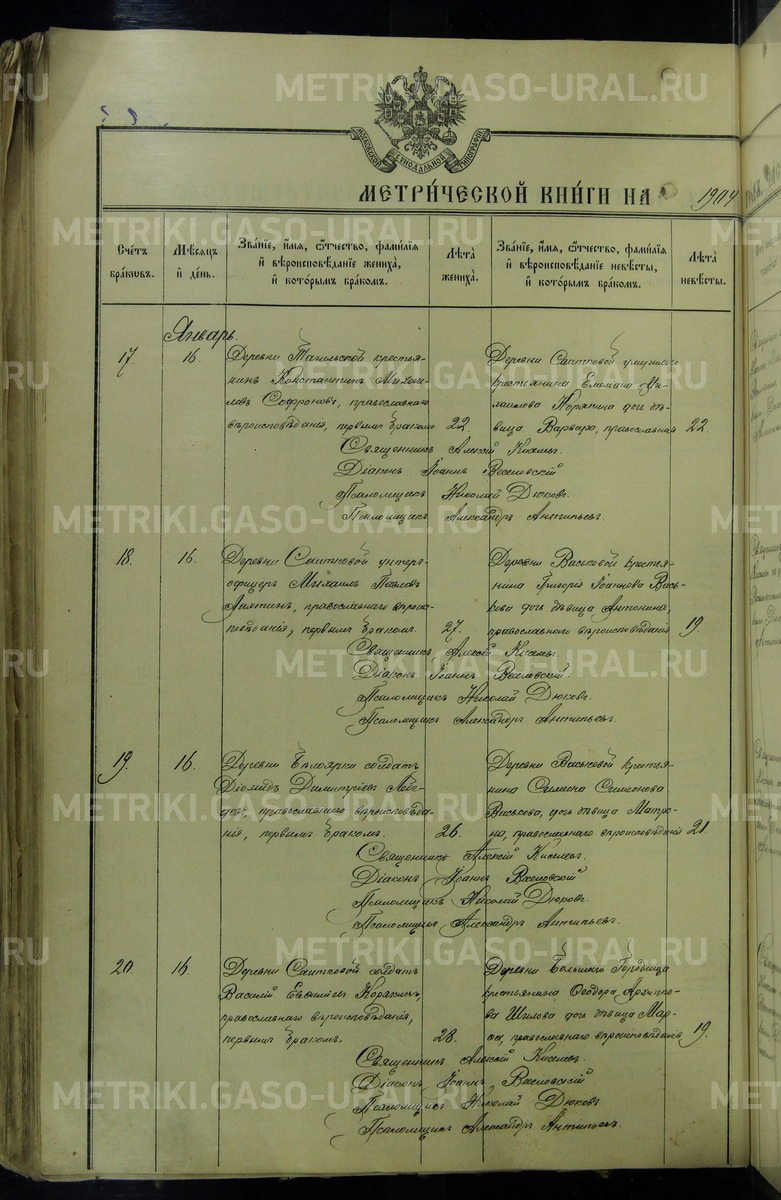 METRIKI.GASO-URAL.RU
МОСКОВСКОЙ СѴНОДАЛЬНОЙ ТИПОГРАФІИ
МЕТРИ́ЧЕСКОЙ КНИ́ГИ НА 1904
Сче́тъ бра́ковъ.
Мѣ́сяцъ и҆ де́нь.
Зва́нїе, и҆́мѧ, ѻ҆́тчество, фами́лїѧ и҆ вѣроисповѣ́данїе жениха̀, и҆ кото́рымъ бра́комъ.
Лѣ̑та жениха̀.
Зва́нїе, и҆́мѧ, ѻ҆́тчество, фами́лїѧ и҆ вѣроисповѣ́данїе невѣ́сты, и҆ кото́рымъ бра́комъ.
Лѣ̑та невѣ́сты.
Январь.
17
16.
Деревни Тагильской крестья-
нинъ Константинъ Михаи-
ловъ Софроновъ, православнаго
вѣроисповѣданія, первымъ бракомъ
22.
Деревни Саитковой умершаго
крестьянина Емельяна Ми-
хаилова Корякина дочь дѣ-
вица Варвара, православная
22.
Священникъ Алексій Киселевъ.
Діаконъ Іоаннъ Веселовскій
Псаломщикъ Николай Дюковъ.
Псаломщикъ Александръ Антипьевъ.
18.
16.
Деревни Саитковой унтеръ-
офицеръ Михаилъ Павловъ
Лахтинъ, православнаго вѣроис-
повѣданія, первымъ бракомъ.
27.
Деревни Васьковой крестья-
нина Григорія Іоаннова Вась-
кова дочь дѣвица Антонина,
православнаго вѣроисповѣданія
19.
Священникъ Алексій Киселевъ.
Діаконъ Іоаннъ Веселовскій
Псаломщикъ Николай Дюковъ.
Псаломщикъ Александръ Антипьевъ.
19.
16.
Деревни Бѣлоярки солдатъ
Діомидъ Димитріевъ
православнаго вѣроисповѣда-
нія, первымъ бракомъ.
26.
Деревни Васьковой крестья-
нина Симеона Симеонова
Васькова, дочь дѣвица Матро-
на, православнаго вѣроисповѣданія
21.
Священникъ Алексій Киселевъ.
Діаконъ Іоаннъ Веселовскій
Псаломщикъ Николай Дюковъ
Псаломщикъ Александръ Антипьевъ.
20.
16
Деревни Саитковой солдатъ
Василій Евфиміевъ Корякинъ,
православнаго вѣроисповѣданія,
первымъ бракомъ.
28.
Деревни Большаго Городища
крестьянина Ѳеодора Архипо-
ва Шилова дочь дѣвица Мар-
ѳа, православнаго вѣроисповѣданія
19.
Священникъ Алексій Киселевъ.
Діаконъ Іоаннъ Веселовскій
Псаломщикъ Николай Дюковъ
Псаломщикъ Александръ Антипьевъ.